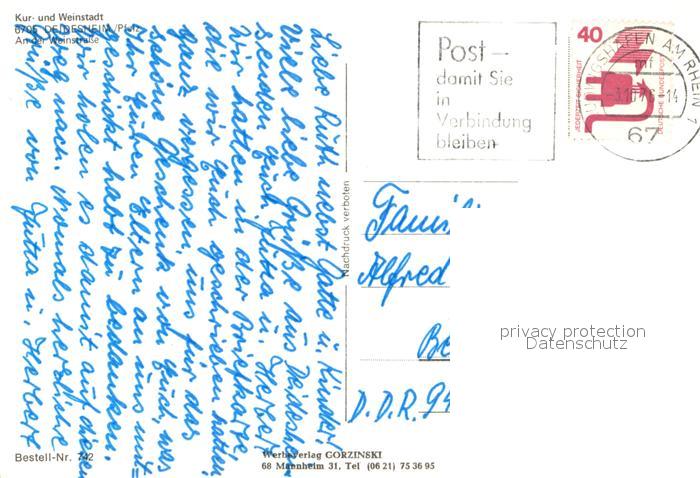 Kur- und Weinstadt
6705 DEIDESHEIM/Pfalz
An der Weinstraße
Liebe Ruth nebst Gatte u. Kinder!
Viele liebe Grüße aus Deidesheim
senden Euch Jutta u. Herbert
Wir hatten in der Briefkarte,
die wir Euch geschrieben hatten
ganz vergessen, uns für das
schöne Geschenk von Euch, was
Ihr Euren Eltern an uns mit-
geschickt habt zu bedanken.
Wir holen es damit auf diesem
Weg nach. Nochmals herzliche
Grüße von Jutta u. Herbert
Bestell-Nr. 742
Werbeverlag GORZINSKI
68 Mannheim 31, Tel (06 21) 75 36 95
Nachdruck verboten
Post —
damit Sie
in
Verbindung
bleiben
40
JEDERZEIT SICHERHEIT
DEUTSCHE BUNDESPOST
LUDWIGSHAFEN AM RHEIN 1
mf
67
Famili
Alfred
Be
D.D.R. 94
privacy protection
Datenschutz